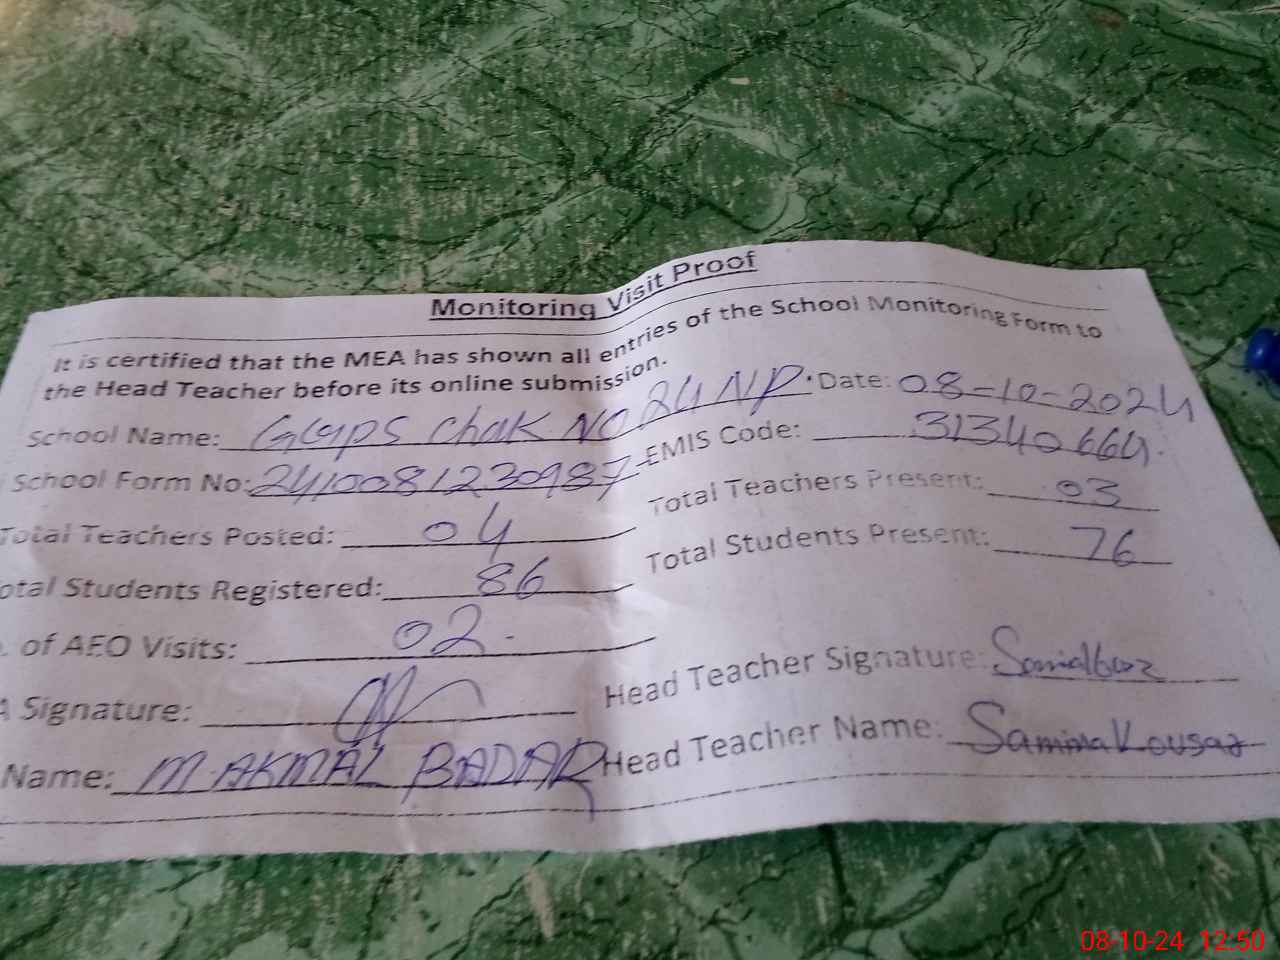 Monitoring Visit Proof
It is certified that the MEA has shown all entries of the School Monitoring Form to
the Head Teacher before its online submission.
School Name: GGPS Chak NO 24 NP. Date: 08-10-2024
School Form No: 2410081230987 EMIS Code: 31340664.
Total Teachers Posted: 04 Total Teachers Present: 03
otal Students Registered: 86 Total Students Present: 76
. of AEO Visits: 02.
A Signature: Head Teacher Signature:
Name: M. AKMAL BADAR Head Teacher Name: Samina Kousar
08-10-24 12:50